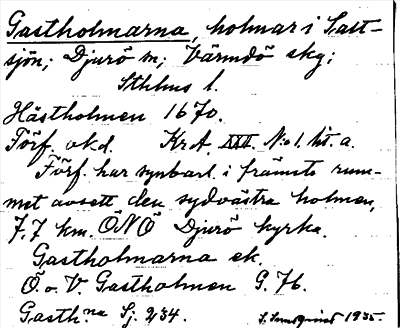 Gastholmarna, holmar i Salt-
sjön; Djurö sn; Värmdö skg;
Sthlms l.
Hästholmen 1670.
Förf. okd. KrA. XXX. N:o 1. lit. a.
Förf. har synbarl. i främsta rum-
met avsett den sydvästra holmen,
7,7 km. ÖNÖ Djurö kyrka.
Gastholmarna ek.
Ö. o. V. Gastholmen G. 76.
Gasth.na Sj. 2/34. S. Lundqvist 1935.